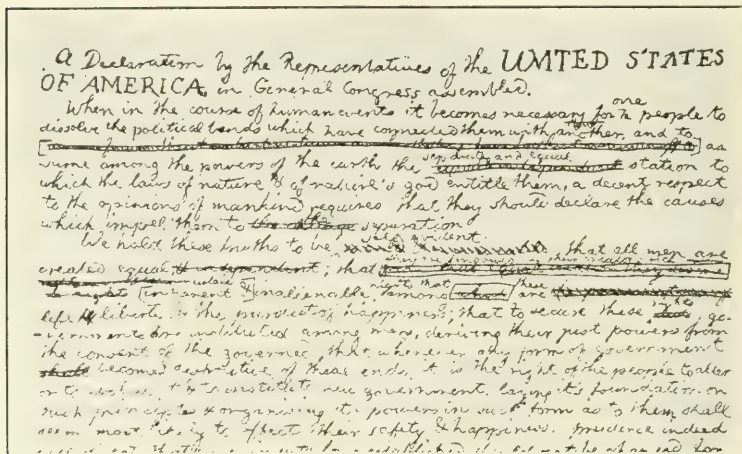 A Declaration by the Representatives of the UNITED STATES
OF AMERICA, in General Congress assembled.
When in the course of human events it becomes necessary for a one people to
dissolve the political bands which have connected them with another, and to
as
sume among the powers of the earth the separate and equal station to
which the laws of nature & of nature's god entitle them, a decent respect
to the opinions of mankind requires that they should declare the causes
which impel them to the separation.
We hold these truths to be self evident that all men are
created equal & independent; that
rights that these
[inherent &] inalienable among which are
life & liberty, & the pursuit of happiness; that to secure these go-
-vernments are instituted among men, deriving their just powers from
the consent of the governed, that whenever any form of government
becomes destructive of these ends, it is the right of the people to alter
or to abolish it, & to institute new government, laying it's foundation on
such principles & organising it's powers in such form as to them shall
seem most likely to effect their safety & happiness. prudence indeed